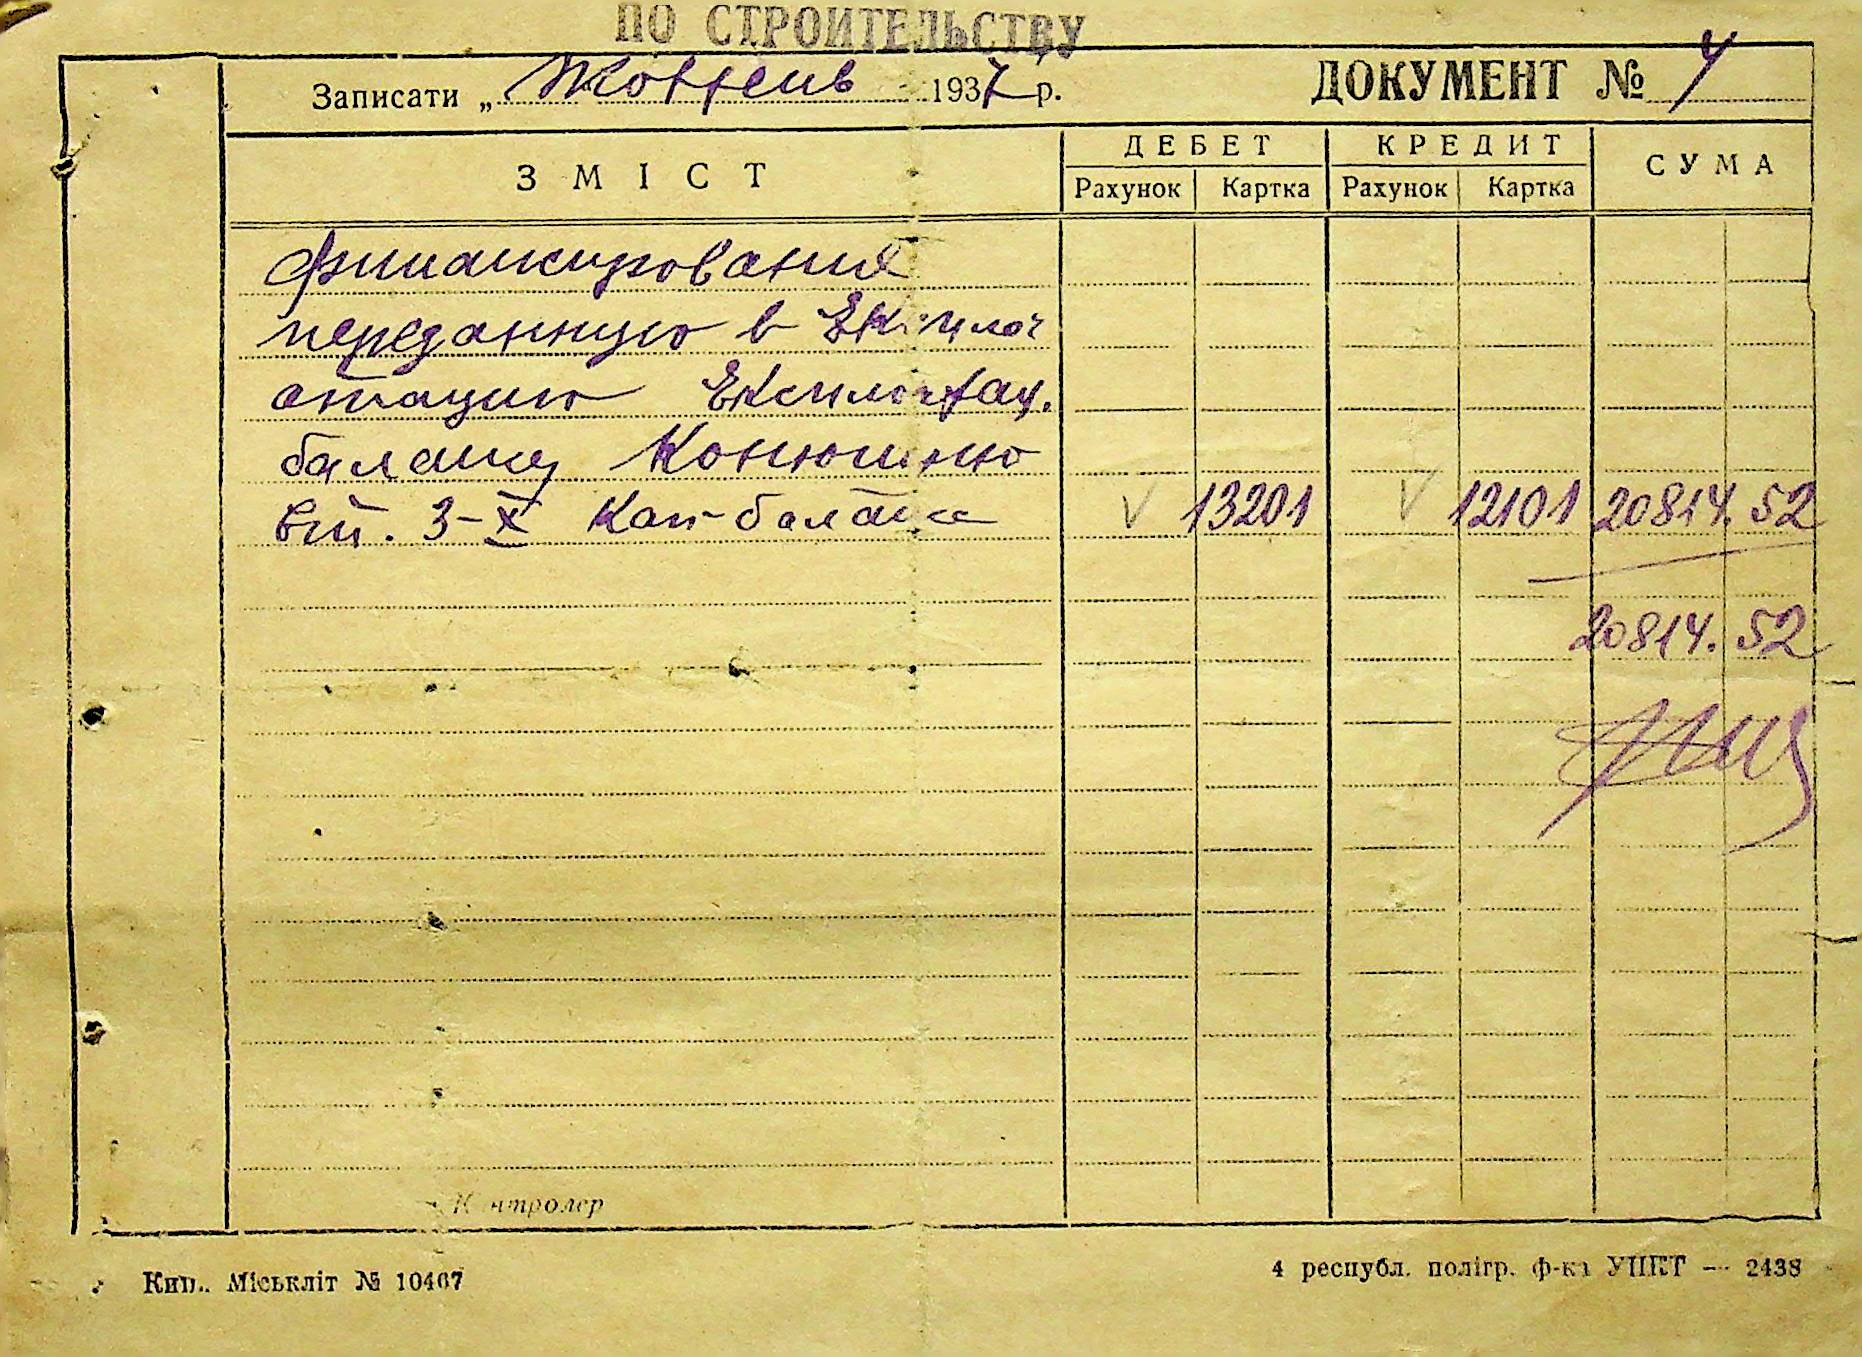 ПО СТРОИТЕЛЬСТВУ
Записати „ Жовтень 1937 р.
ДОКУМЕНТ № 4
ЗМІСТ
ДЕБЕТ
КРЕДИТ
СУМА
Рахунок Картка Рахунок Картка
финансирования
переданную в Експлоа
атацию Експлоатац.
балансу Конюшню
віт. 3-X Кап баланса V 13201 V 12101 20814.52
20814.52
Контролер
Киів. Міськліт № 10467
4 республ. полігр. ф-ка УПКТ — 2438